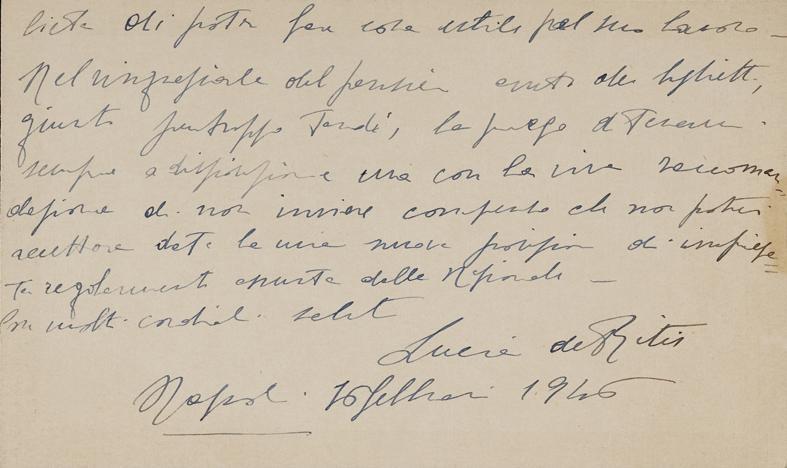 lieta di poter fare cosa utile pel suo lavoro —
Nel ringraziarla del pensiero avuto dei biglietti,
giunti purtroppo tardi, la prego di tenermi
sempre a disposizione ma con la viva raccoman=
dazione di non inviare compenso che non potrei
accettare data la mia nuova posizione di impiega=
ta regolarmente assunta dalla Nazionale —
Con molti cordiali saluti
Lucia de Ritis
Napoli 16 febbraio 1946